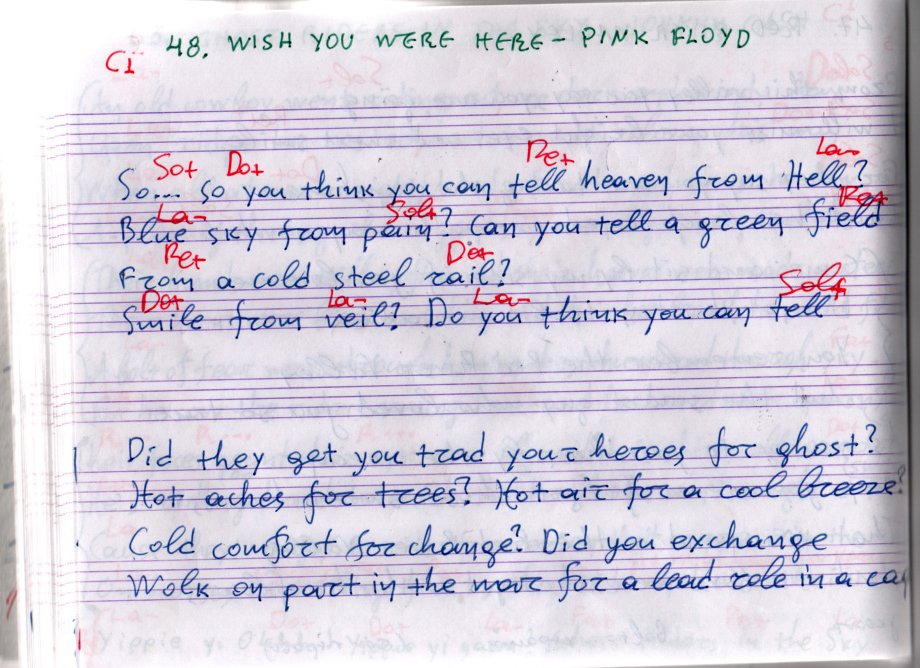 48. WISH YOU WERE HERE - PINK FLOYD
C1
Sol+ Do+ Re+ La-
So... so you think you can tell heaven from Hell?
La- Sol+ Re+
Blue sky from pain? Can you tell a green field
Re+ Do+
From a cold steel rail?
Do+ La- La- Sol+
Smile from veil? Do you think you can tell
Did they get you trad your heroes for ghost?
Hot aches for trees? Hot air for a cool breeze?
Cold comfort for change? Did you exchange
Wolk on part in the warc for a lead role in a ca